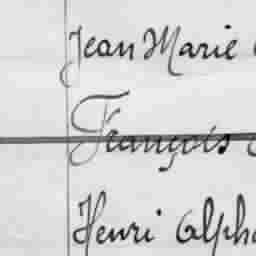 Jean Marie
François
Henri Alpho